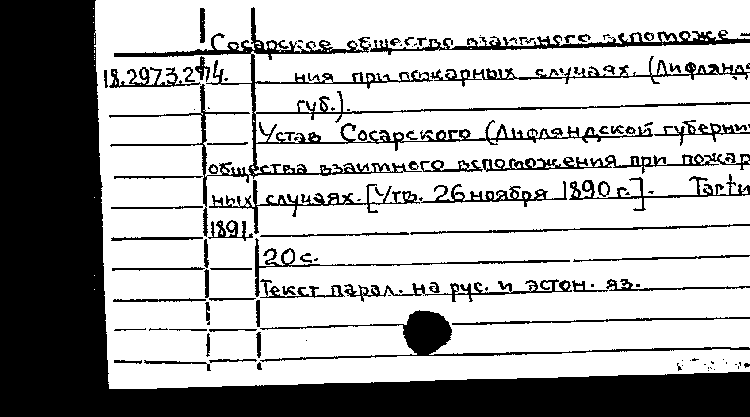 Сосарское общество взаимного вспоможе –
18.297.3.274. ния при пожарных случаях. (Лифлянд
губ.).
Устав Сосарского (Лифляндской губерни
общества взаимного вспоможения при пожар
ных случаях. [Утв. 26 ноября 1890 г.]. Tartu
1891.
20 с.
Текст парал. на рус. и эстон. яз.